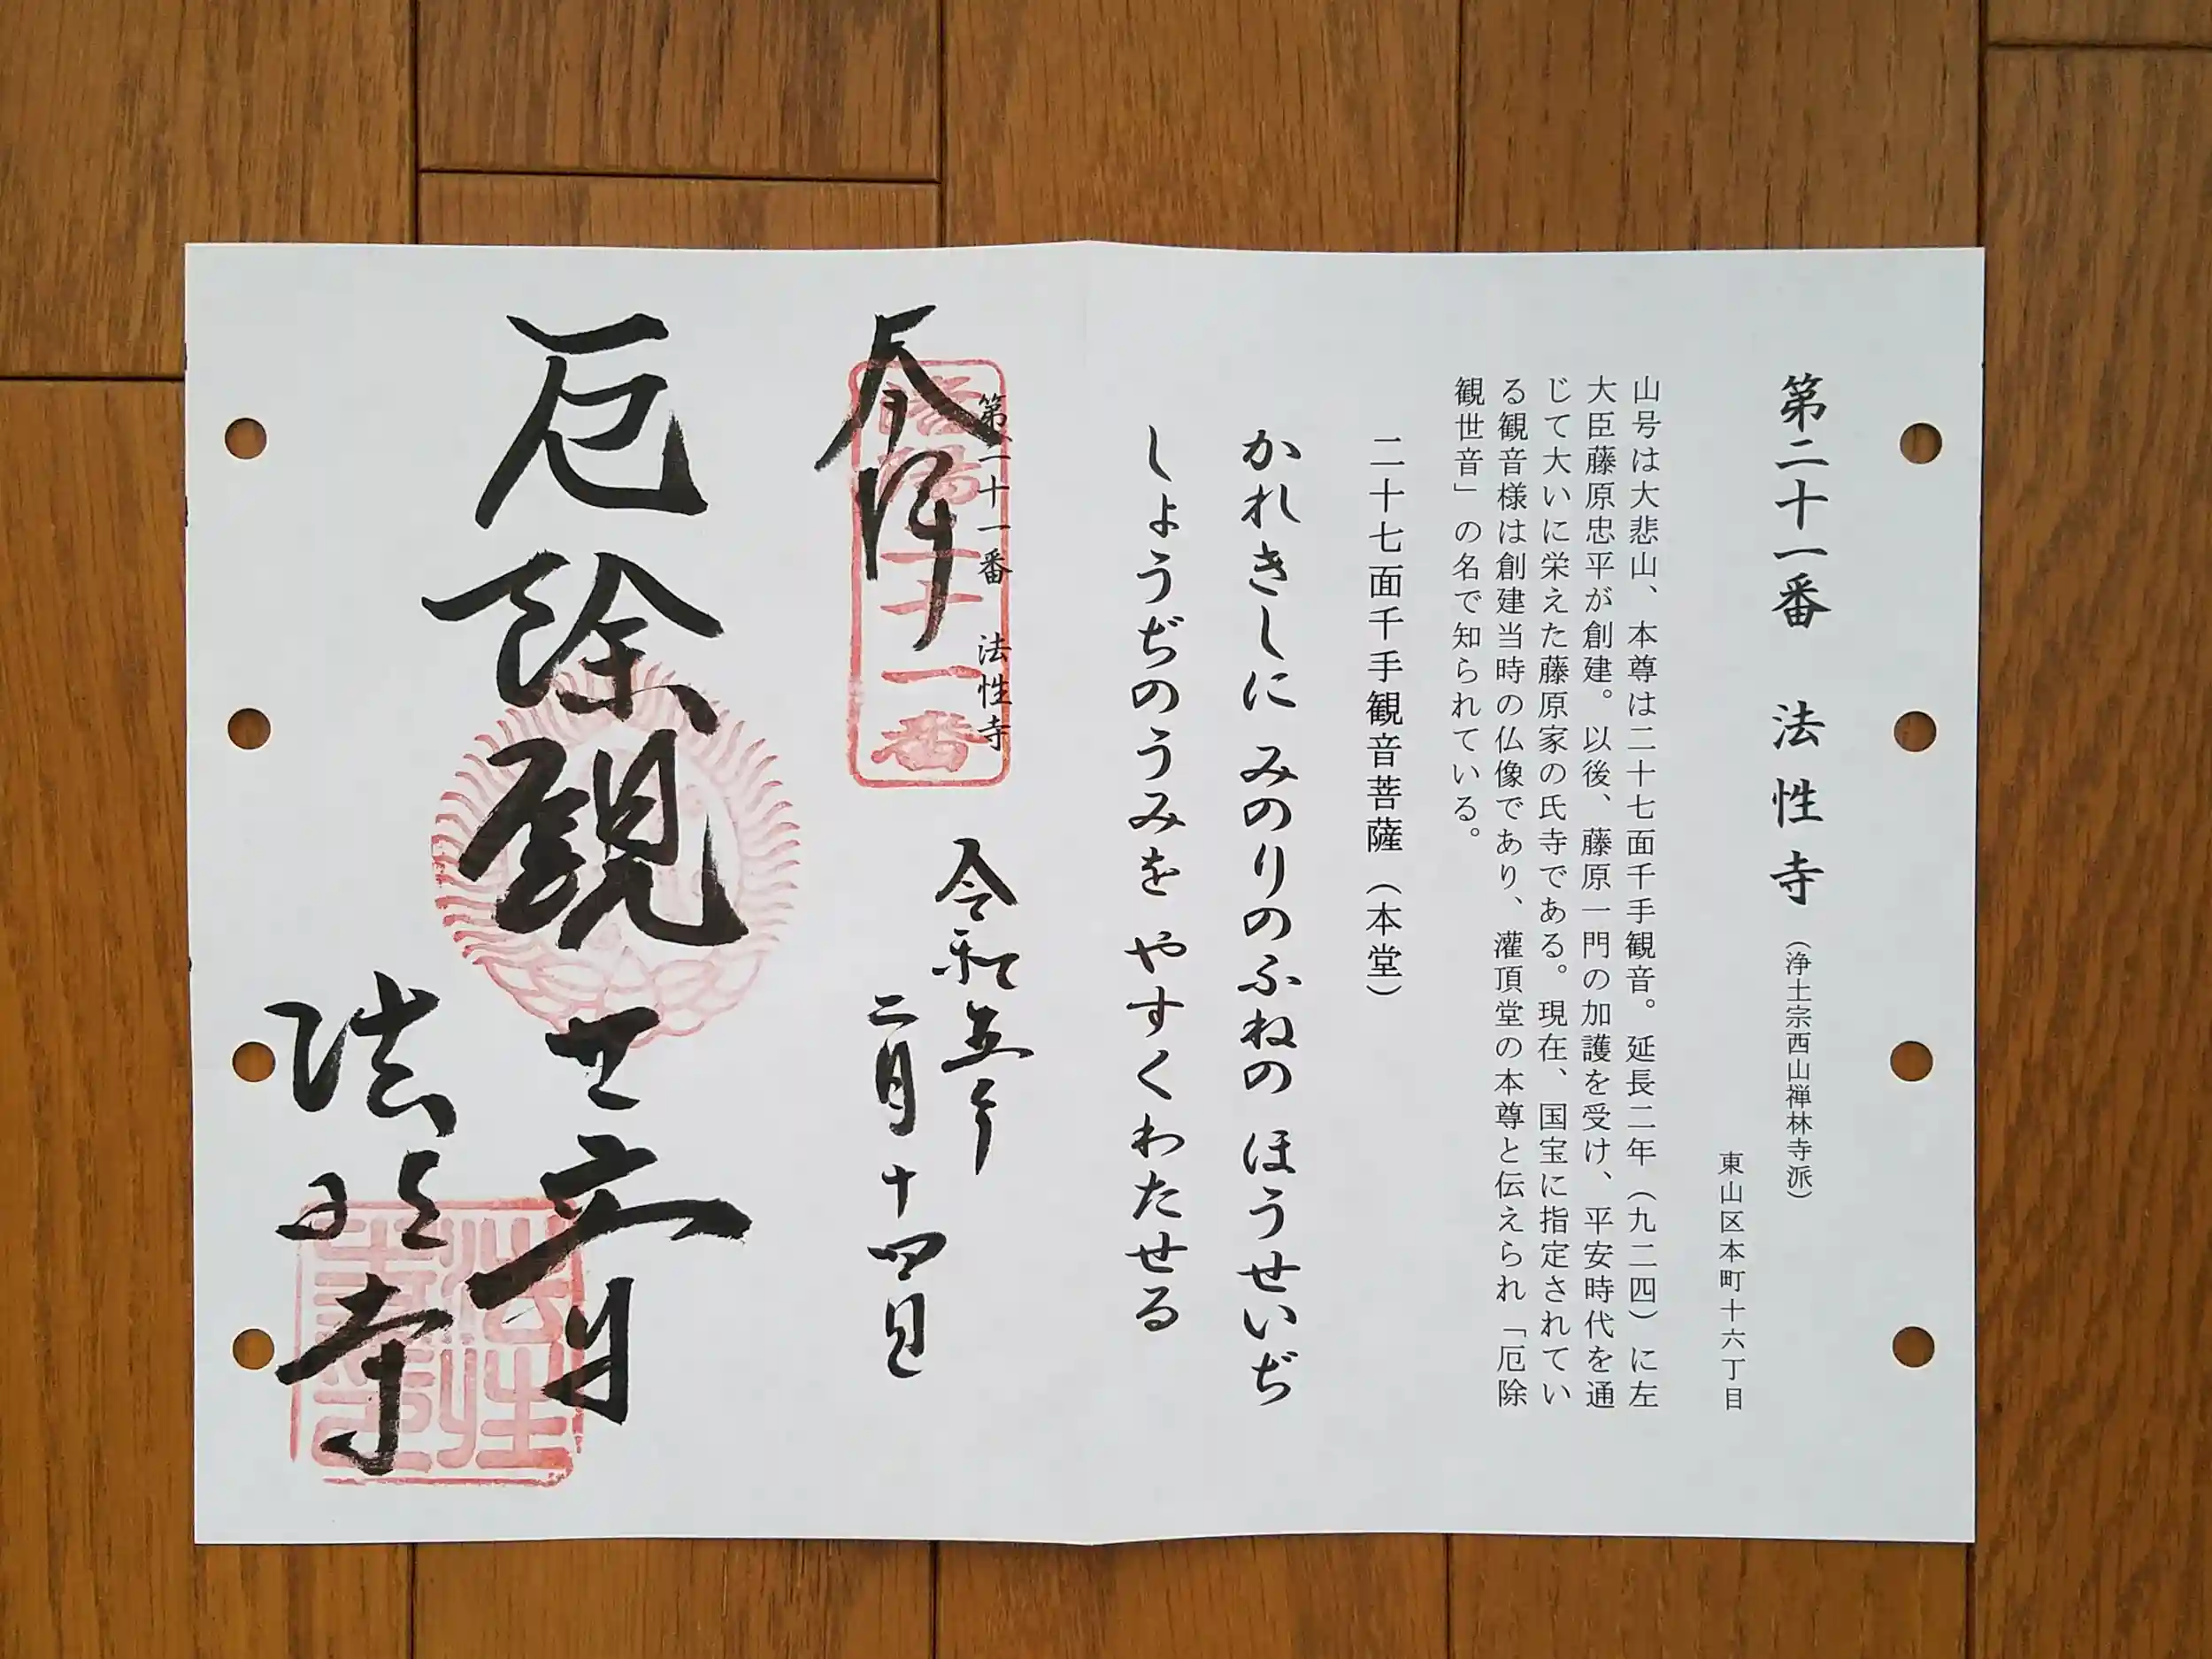 第二十一番 法性寺 （浄土宗西山禅林寺派）
東山区本町十六丁目
山号は大悲山、本尊は二十七面千手観音。延長二年（九二四）に左
大臣藤原忠平が創建。以後、藤原一門の加護を受け、平安時代を通
じて大いに栄えた藤原家の氏寺である。現在、国宝に指定されてい
る観音様は創建当時の仏像であり、灌頂堂の本尊と伝えられ「厄除
観世音」の名で知られている。
二十七面千手観音菩薩（本堂）
かれきしに みのりのふねの ほうせいぢ
しょうぢのうみを やすくわたせる
第二十一番 法性寺
奉拝
令和五年
二月十四日
厄除観世音
法性寺
法性